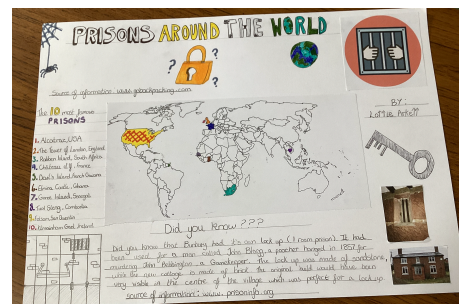 PRISONS AROUND THE WORLD
? ? ?
Source of information: www.gobackpacking.com
The 10 most famous
PRISONS
1. Alcatraz, USA
2. The Tower of London, England
3. Robben Island, South Africa
4. Château d'If, France
5. Devil's Island, French Guiana
6. Elmina Castle, Ghana
7. Goree Island, Senegal
8. Tuol Sleng, Cambodia
9. San Quentin
10. Gaol, Ireland
BY:
Lottie
Did you know???
Did you know that Bunbury had it's own lock up (1 room prison). It had
been used for a man called John Blagg, a poacher hanged in 1857 for
murdering John Bebbington, a Gamekeeper. The lock up was made of sandstone,
while the own cottage is made of brick the original build would have been
very visible in the centre of the village which was perfect for a lock up
source of information: www.prisoninfo.org